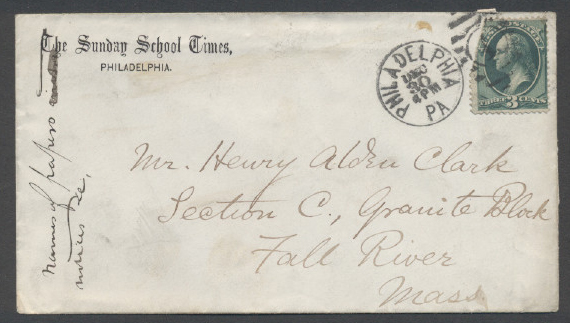 The Sunday School Times,
PHILADELPHIA.
PHILADELPHIA
DEC
30
4PM
PA
THREE 3 CENTS
Mr. Henry Alden Clark
Section C., Granite Block
Fall River
Mass
names of papers
notices &c,